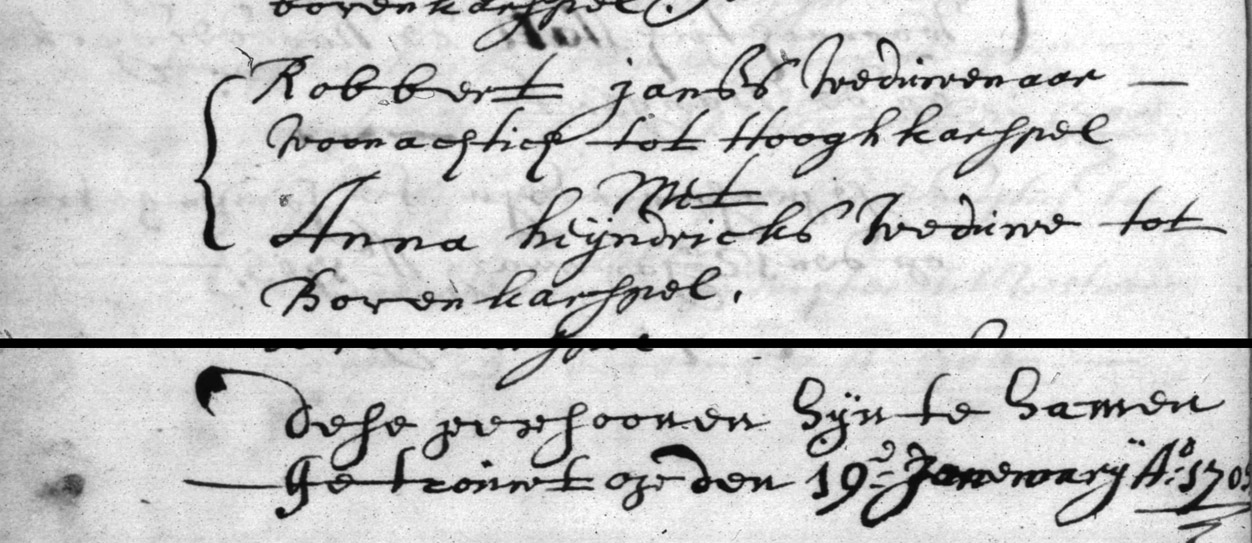 bovenkarspel.
Robbert janss Weduwenaar —
Woonachtich tot Hooghkarspel
Met
Anna heÿndricks Weduwe tot
Bovenkarspel.
dese persoonen sÿn te samen
getrouwt op den 19e Janewarÿ A:o 170